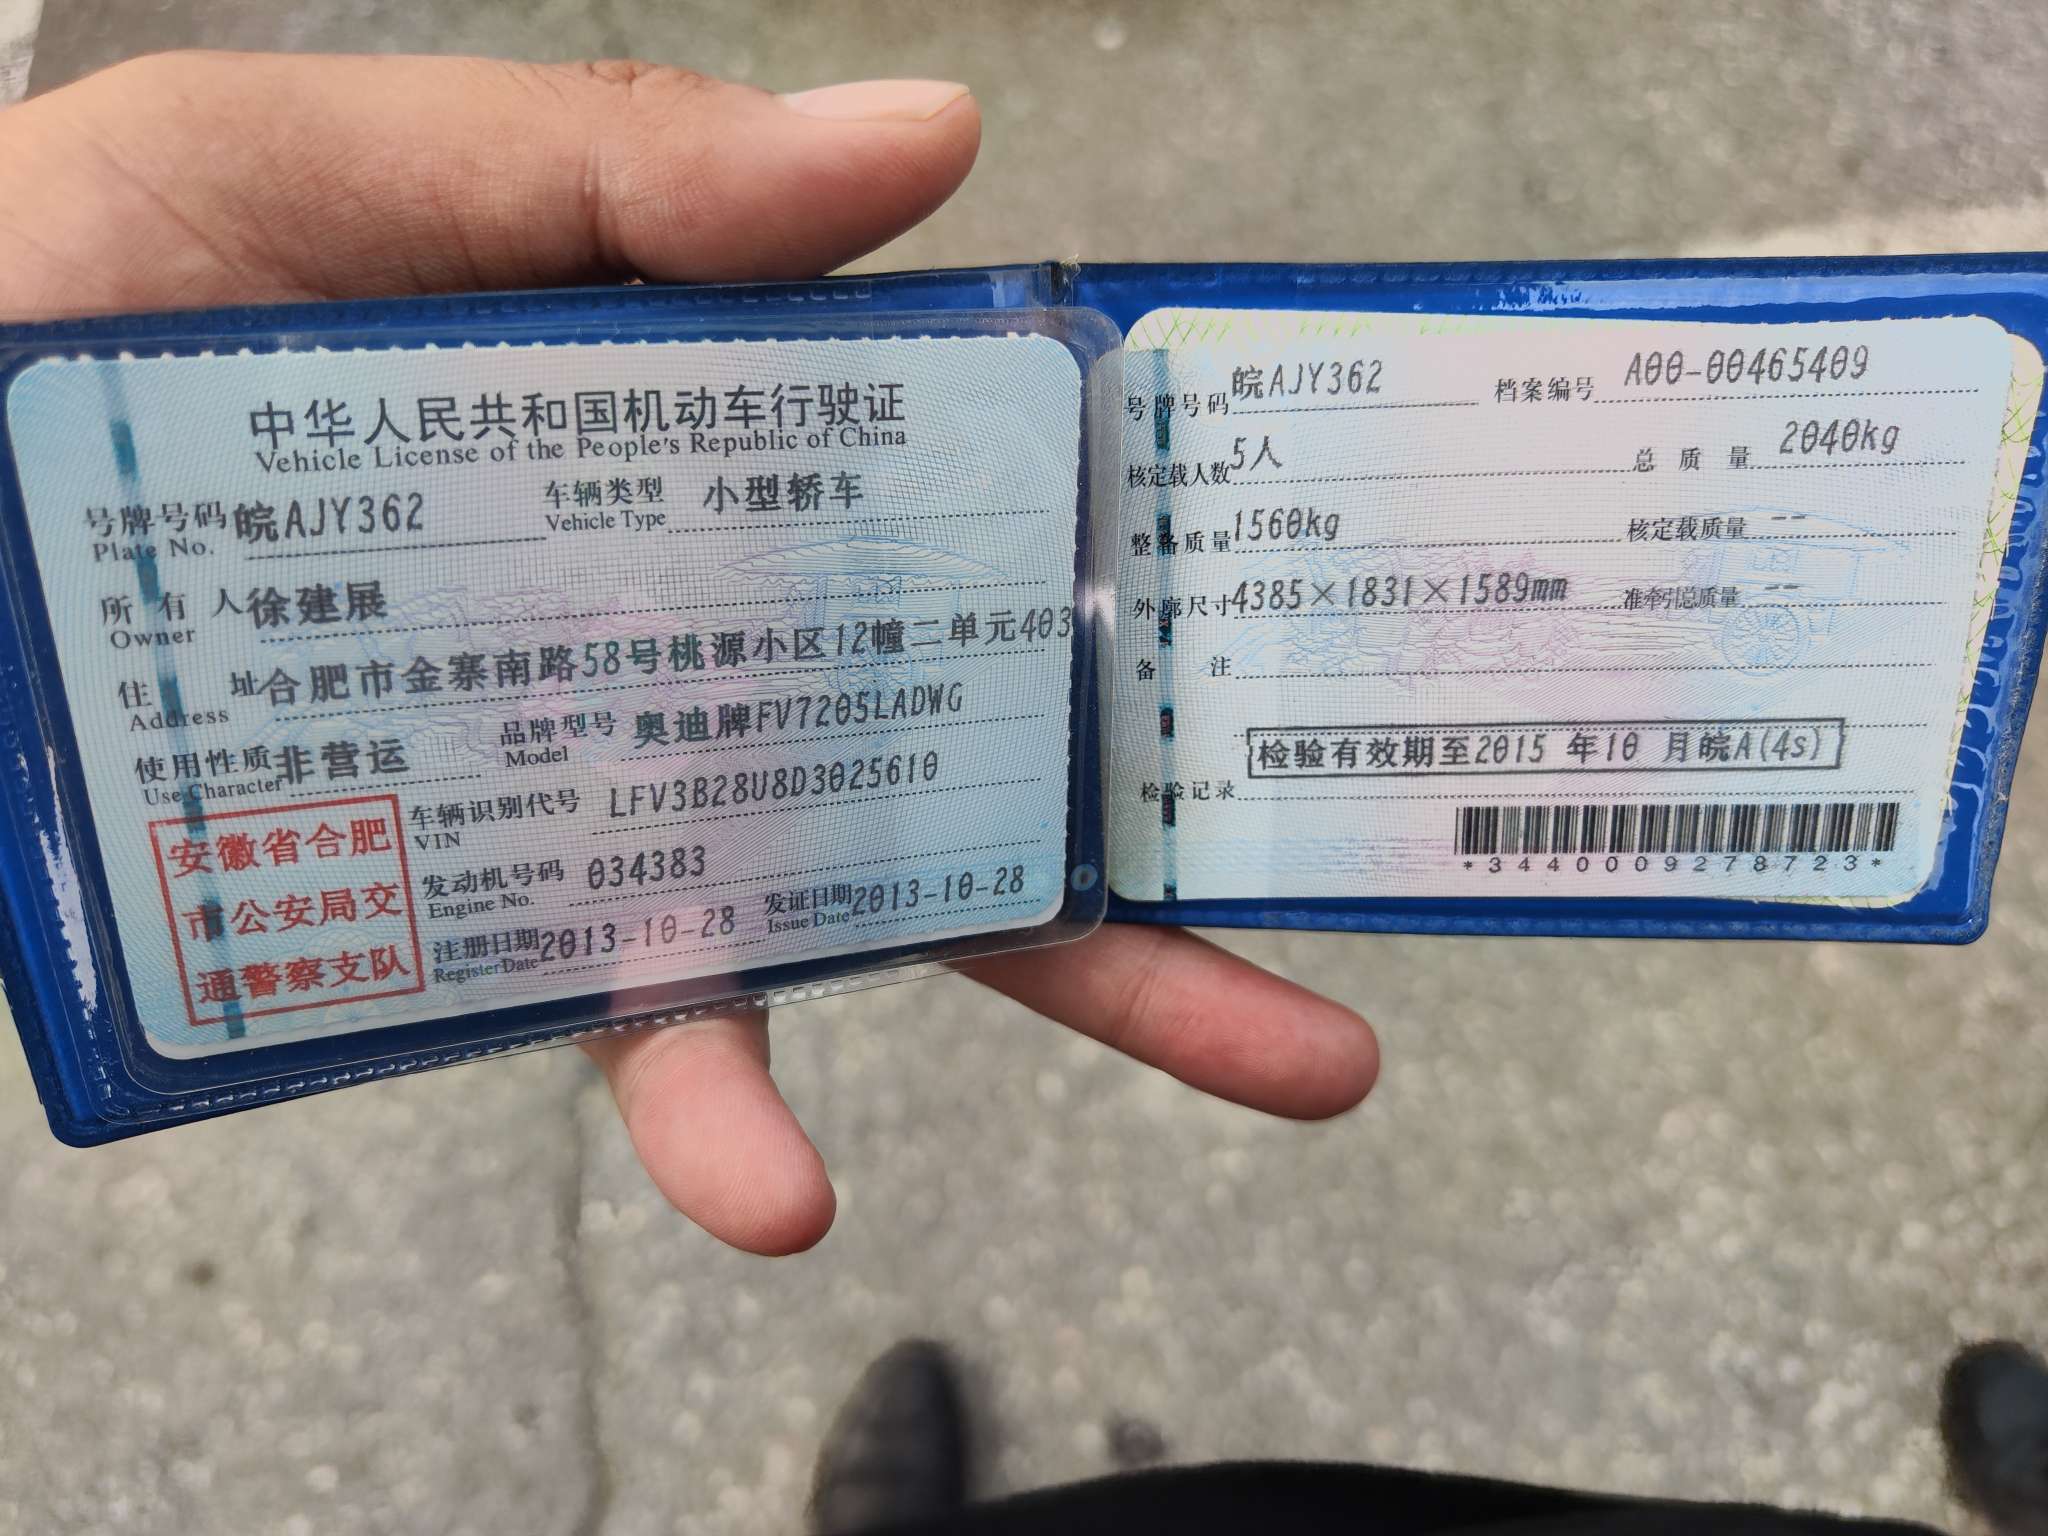 中华人民共和国机动车行驶证
Vehicle License of the People's Republic of China
号牌号码 皖AJY362 车辆类型 小型轿车
Plate No. Vehicle Type
所有人 徐建展
Owner
住址 合肥市金寨南路58号桃源小区12幢二单元403
Address
使用性质 非营运 品牌型号 奥迪牌FV7205LADWG
Use Character Model
车辆识别代号 LFV3B28U8D3025610
VIN
发动机号码 034383
Engine No.
注册日期 2013-10-28 发证日期 2013-10-28
Register Date Issue Date
安徽省合肥
市公安局交
通警察支队
号牌号码 皖AJY362 档案编号 A00-00465409
核定载人数 5人 总质量 2040kg
整备质量 1560kg 核定载质量 --
外廓尺寸 4385×1831×1589mm 准牵引总质量 --
备注
检验有效期至2015 年10 月皖A(4s)
检验记录
*3440009278723*